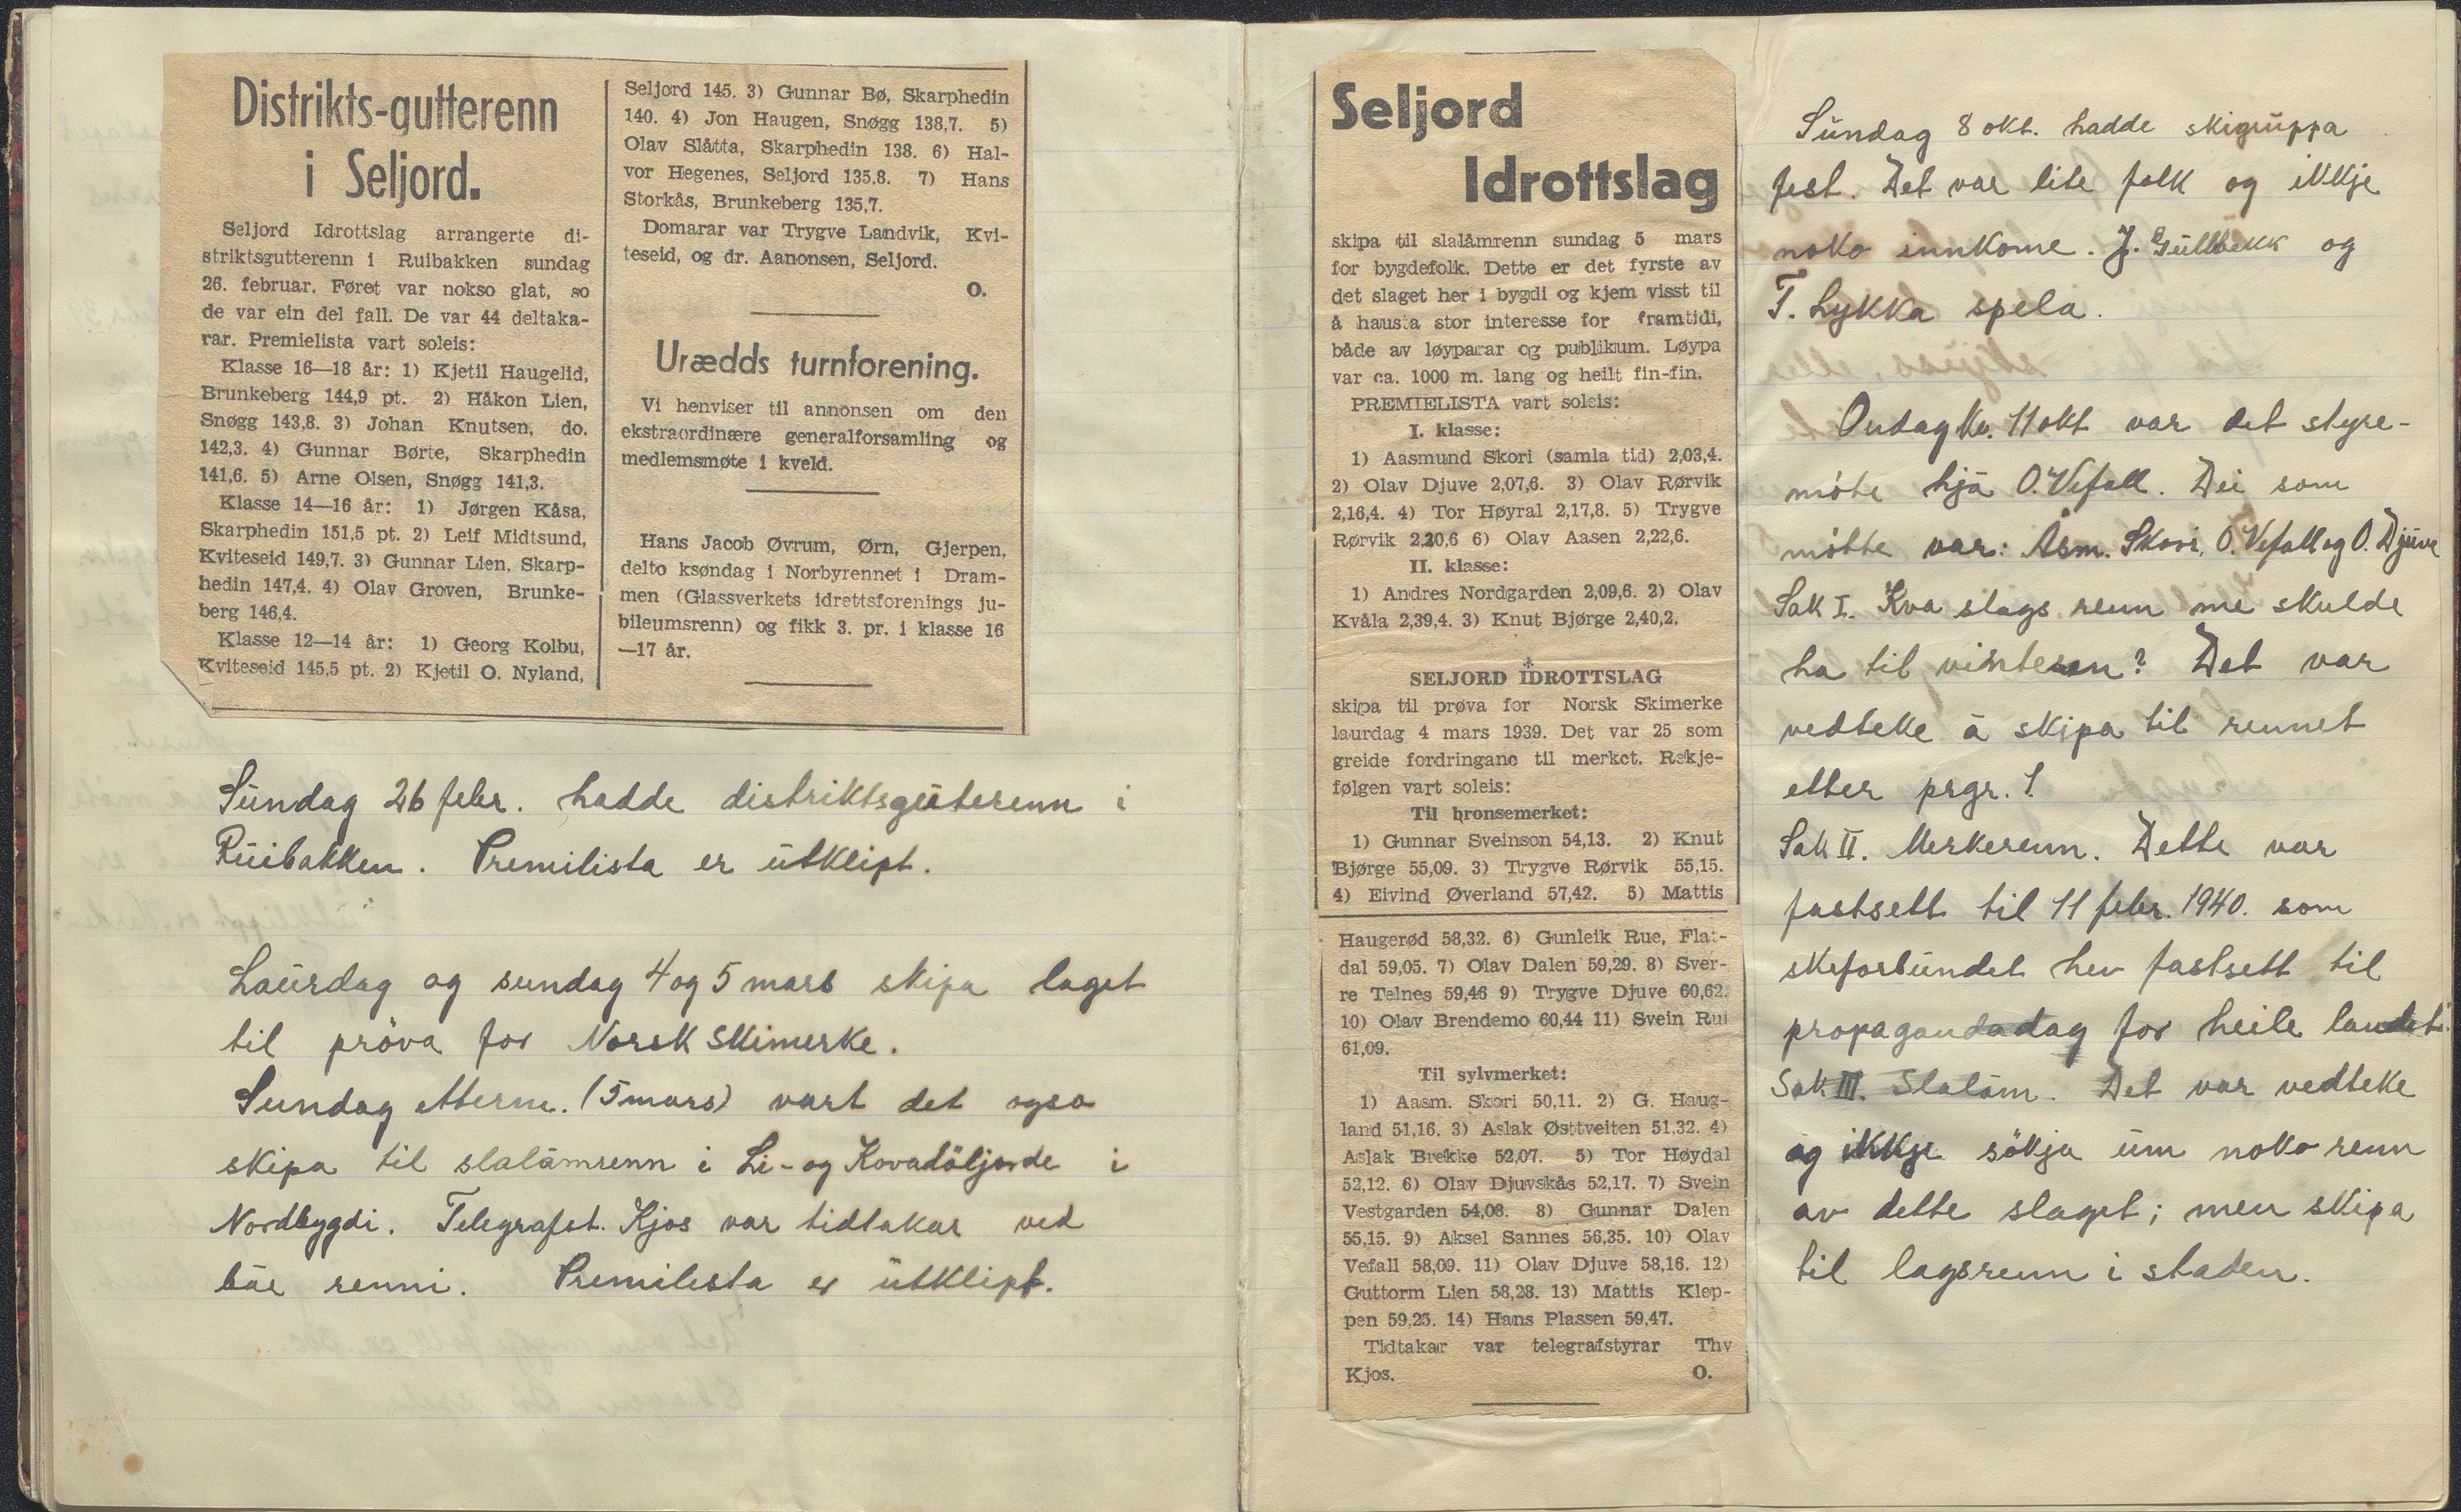 Distrikts-gutterenn
i Seljord.
Seljord Idrottslag arrangerte di-
striktsgutterenn i Ruibakken sundag
26. februar. Føret var nokso glat, so
de var ein del fall. De var 44 deltaka-
rar. Premielista vart soleis:
Klasse 16—18 år: 1) Kjetil Haugelid,
Brunkeberg 144,9 pt. 2) Håkon Lien,
Snøgg 143,8. 3) Johan Knutsen, do.
142,3. 4) Gunnar Børte, Skarphedin
141,6. 5) Arne Olsen, Snøgg 141,3.
Klasse 14—16 år: 1) Jørgen Kåsa,
Skarphedin 151,5 pt. 2) Leif Midtsund,
Kviteseid 149,7. 3) Gunnar Lien, Skarp-
hedin 147,4. 4) Olav Groven, Brunke-
berg 146,4.
Klasse 12—14 år: 1) Georg Kolbu,
Kviteseid 145,5 pt. 2) Kjetil O. Nyland,
Seljord 145. 3) Gunnar Bø, Skarphedin
140. 4) Jon Haugen, Snøgg 138,7. 5)
Olav Slåtta, Skarphedin 138. 6) Hal-
vor Hegenes, Seljord 135,8. 7) Hans
Storkås, Brunkeberg 135,7.
Domarar var Trygve Landvik, Kvi-
teseid, og dr. Aanonsen, Seljord.
O.
Urædds turnforening.
Vi henviser til annonsen om den
ekstraordinære generalforsamling og
medlemsmøte i kveld.
Hans Jacob Øvrum, Ørn, Gjerpen,
delto ksøndag i Norbyrennet i Dram-
men (Glassverkets idrettsforenings ju-
bileumsrenn) og fikk 3. pr. i klasse 16
—17 år.
Sundag 26 febr. hadde distriktsguterenn i
Ruibakken. Premilista er utklipt.
Laurdag og sundag 4 og 5 mars skipa laget
til pröva for Norsk Skimerke.
Sundag etterm. (5 mars) vart det ogso
skipa til slalåmrenn i Li- og Kovadöljorde i
Nordbygdi. Telegrafst. Kjos var tidtakar ved
båe renni. Premilista er utklipt.
Seljord
Idrottslag
skipa til slalåmrenn sundag 5 mars
for bygdefolk. Dette er det fyrste av
det slaget her i bygdi og kjem visst til
å hausta stor interesse for framtidi,
både av løyparar og publikum. Løypa
var ca. 1000 m. lang og heilt fin-fin.
PREMIELISTA vart soleis:
I. klasse:
1) Aasmund Skori (samla tid) 2,03,4.
2) Olav Djuve 2,07,6. 3) Olav Rørvik
2,16,4. 4) Tor Høyral 2,17,8. 5) Trygve
Rørvik 2,20,6 6) Olav Aasen 2,22,6.
II. klasse:
1) Andres Nordgarden 2,09,6. 2) Olav
Kvåla 2,39,4. 3) Knut Bjørge 2,40,2.
*
SELJORD IDROTTSLAG
skipa til prøva for Norsk Skimerke
laurdag 4 mars 1939. Det var 25 som
greide fordringane til merket. Rekje-
følgen vart soleis:
Til bronsemerket:
1) Gunnar Sveinson 54,13. 2) Knut
Bjørge 55,09. 3) Trygve Rørvik 55,15.
4) Eivind Øverland 57,42. 5) Mattis
Haugerød 58,32. 6) Gunleik Rue, Flat-
dal 59,05. 7) Olav Dalen 59,29. 8) Sver-
re Telnes 59,46 9) Trygve Djuve 60,62.
10) Olav Brendemo 60,44 11) Svein Rui
61,09.
Til sylvmerket:
1) Aasm. Skori 50,11. 2) G. Haug-
land 51,16. 3) Aslak Østtveiten 51,32. 4)
Aslak Brekke 52,07. 5) Tor Høydal
52,12. 6) Olav Djuvskås 52,17. 7) Svein
Vestgarden 54,08. 8) Gunnar Dalen
55,15. 9) Aksel Sannes 56,35. 10) Olav
Vefall 58,09. 11) Olav Djuve 58,16. 12)
Guttorm Lien 58,28. 13) Mattis Klep-
pen 59,23. 14) Hans Plassen 59,47.
Tidtakar var telegrafstyrar Thv
Kjos. O.
Sundag 8 okt. hadde skigruppa
fest. Det var lite folk og ikkje
noko innkome. J. Gullbekk og
T. Lykka spela.
Ondag kv. 11 okt var det styre-
möte hjå O. Vefall. Dei som
mötte var: Åsm. Skori, O. Vefall og O. Djuve
Sak I. Kva slags renn me skulde
ha til vinteren? Det var
vedteke å skipa til rennet
etter prgr. 1.
Sak II. Merkerenn. Dette var
fastsett til 11 febr. 1940. som
skeforbundet hev fastsett til
propagandadag for heile landet.
Sak III. Slalåm. Det var vedteke
åg ikkje sökja um noko renn
av dette slaget; men skipa
til lagsrenn i staden.